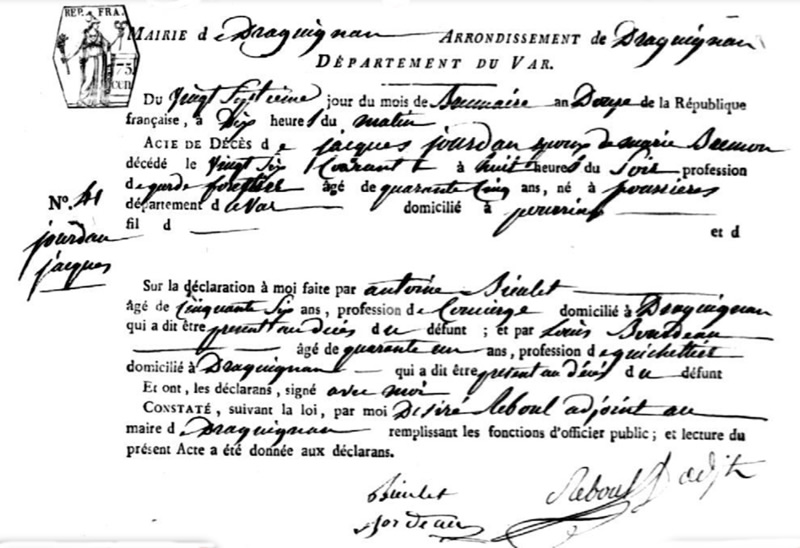 REP. FRA.
75.
CEN
MAIRIE de Draguignan ARRONDISSEMENT de Draguignan
DÉPARTEMENT DU VAR.
Du vingt septieme jour du mois de Brumaire an Douze de la République
française, à Dix heures du matin
ACTE DE DÉCÈS de jacques jourdan époux de marie
décédé le vingt six Courant à huit heures du Soir profession
de garde forestier âgé de quarante Cinq ans, né à pourrières
département du Var domicilié à pourrieres
fil d et d
N°. 41
jourdan
jacques
Sur la déclaration à moi faite par antoine Sieulet
âgé de Cinquante Six ans, profession de Concierge domicilié à Draguignan
qui a dit être present au décès du défunt ; et par Louis Bourdeau
âgé de quarante un ans, profession de guichettier
domicilié à Draguignan qui a dit être present au décès du défunt
Et ont, les déclarans, signé avec moi
CONSTATÉ, suivant la loi, par moi Désiré Reboul adjoint au
maire de Draguignan remplissant les fonctions d'officier public ; et lecture du
présent Acte a été donnée aux déclarans.
Sieulet
Reboul adjt
Bordeau